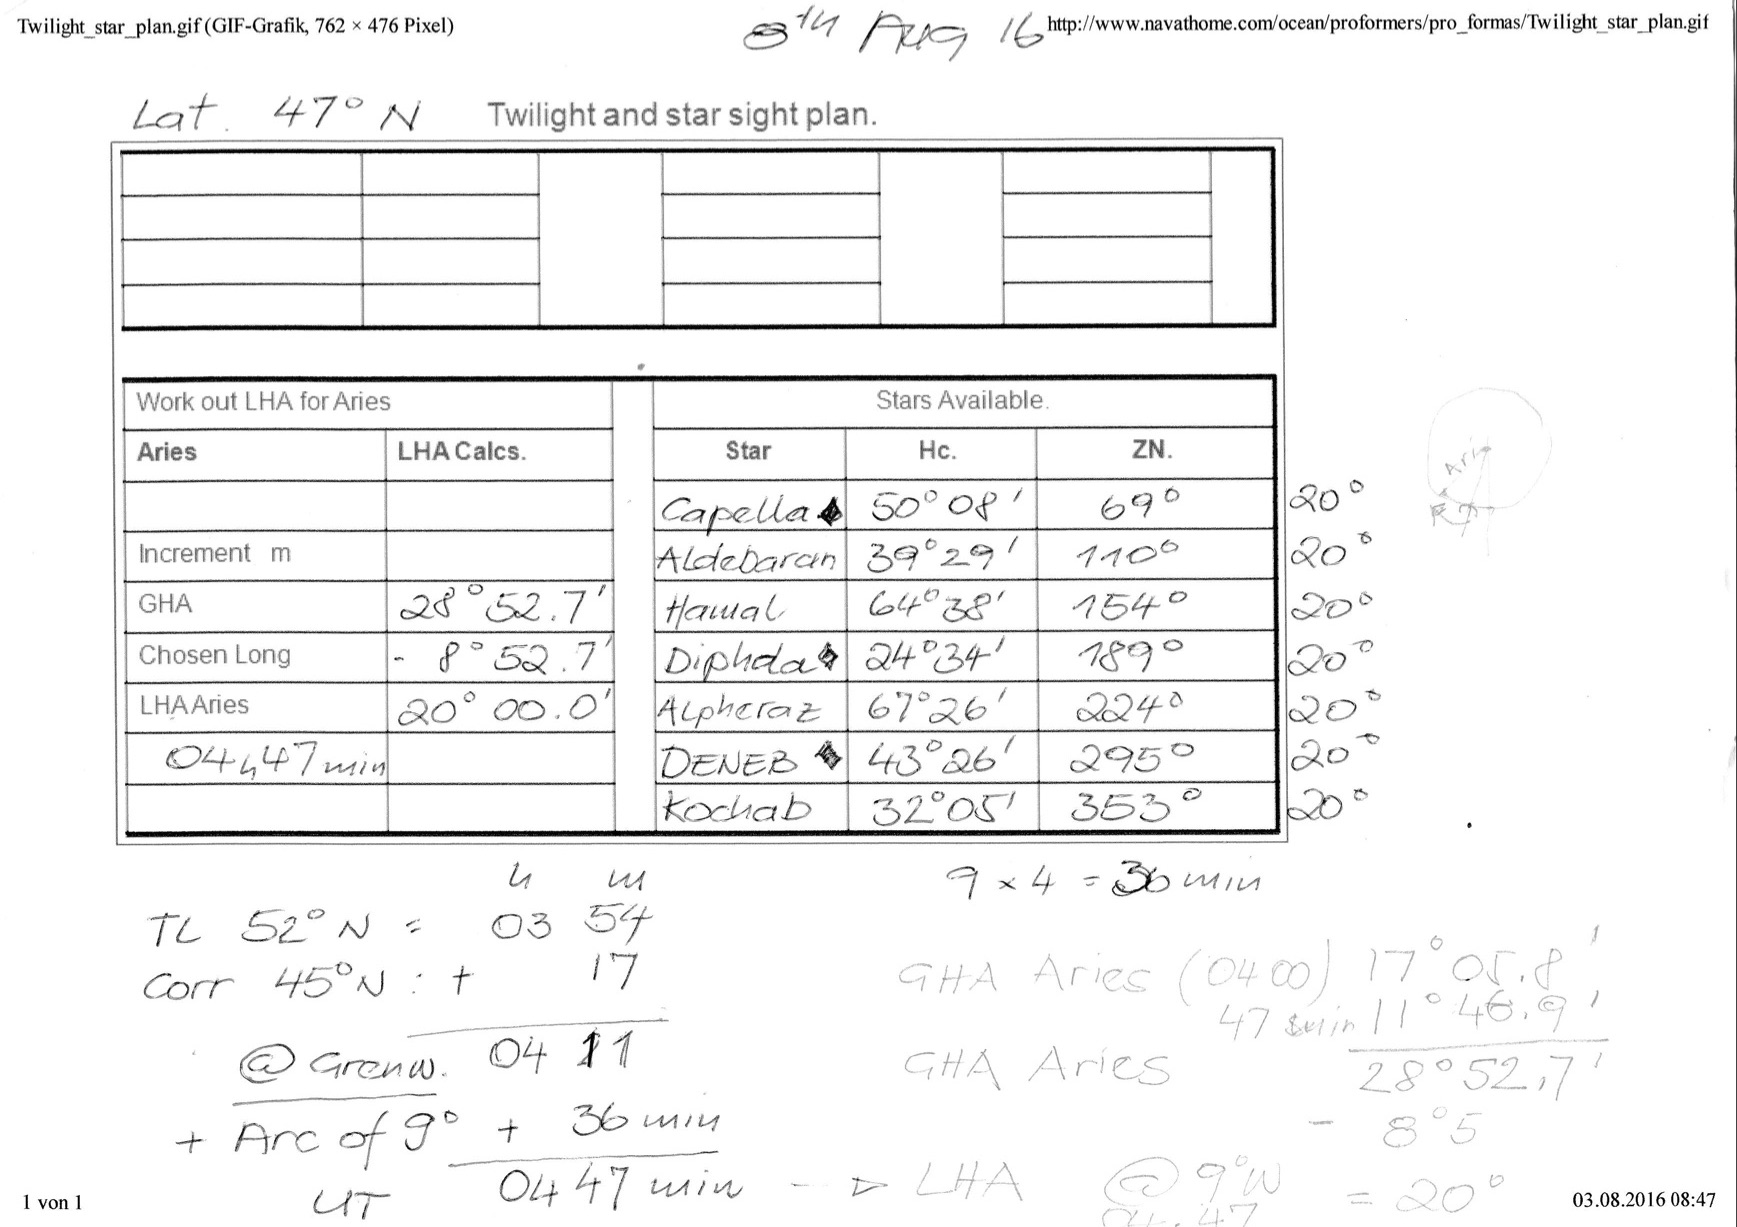 Twilight_star_plan.gif (GIF-Grafik, 762 × 476 Pixel)
8th Aug 16
http://www.navathome.com/ocean/proformers/pro_formas/Twilight_star_plan.gif
Lat. 47° N
Twilight and star sight plan.
Work out LHA for Aries
Stars Available.
Aries LHA Calcs. Star Hc. ZN.
Capella 50° 08' 69° 20°
Increment m Aldebaran 39° 29' 110° 20°
GHA 28° 52.7' Hamal 64° 38' 154° 20°
Chosen Long - 8° 52.7' Diphda 24° 34' 189° 20°
LHA Aries 20° 00.0' Alpheraz 67° 26' 224° 20°
04h47min DENEB 43° 26' 295° 20°
Kochab 32° 05' 353° 20°
h m
TL 52° N = 03 54
Corr 45° N : + 17
@ Grenw. 04 11
+ Arc of 9° + 36 min
UT 04 47 min
9 x 4 = 36 min
GHA Aries (0400) 17° 05.8'
47 min 11° 46.9'
GHA Aries 28° 52,7'
- 8° 5
LHA @ 9° W = 20°
04.47
1 von 1
03.08.2016 08:47